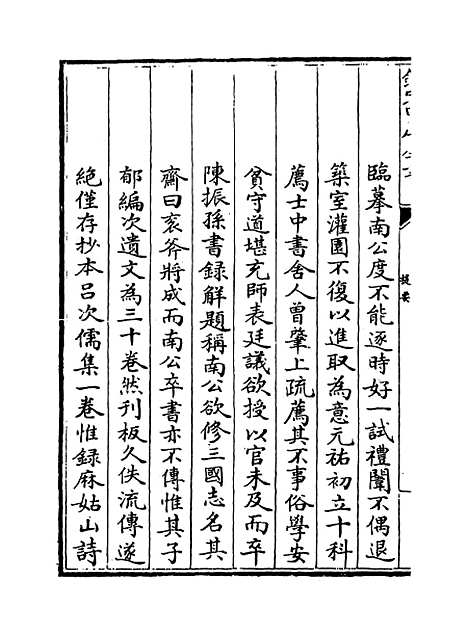 臨摹南公度不能逐時好一試禮闈不偶退
築室灌園不復以進取為意元祐初立十科
薦士中書舍人曾肇上疏薦其不事俗學安
貧守道堪充師表廷議欲授以官未及而卒
陳振孫書録解題稱南公欲修三國志名其
齋曰衮斧將成而南公卒書亦不傳惟其子
郁編次遺文為三十卷然刊板久佚流傳遂
絶僅存抄本吕次儒集一卷惟録麻姑山詩
提要